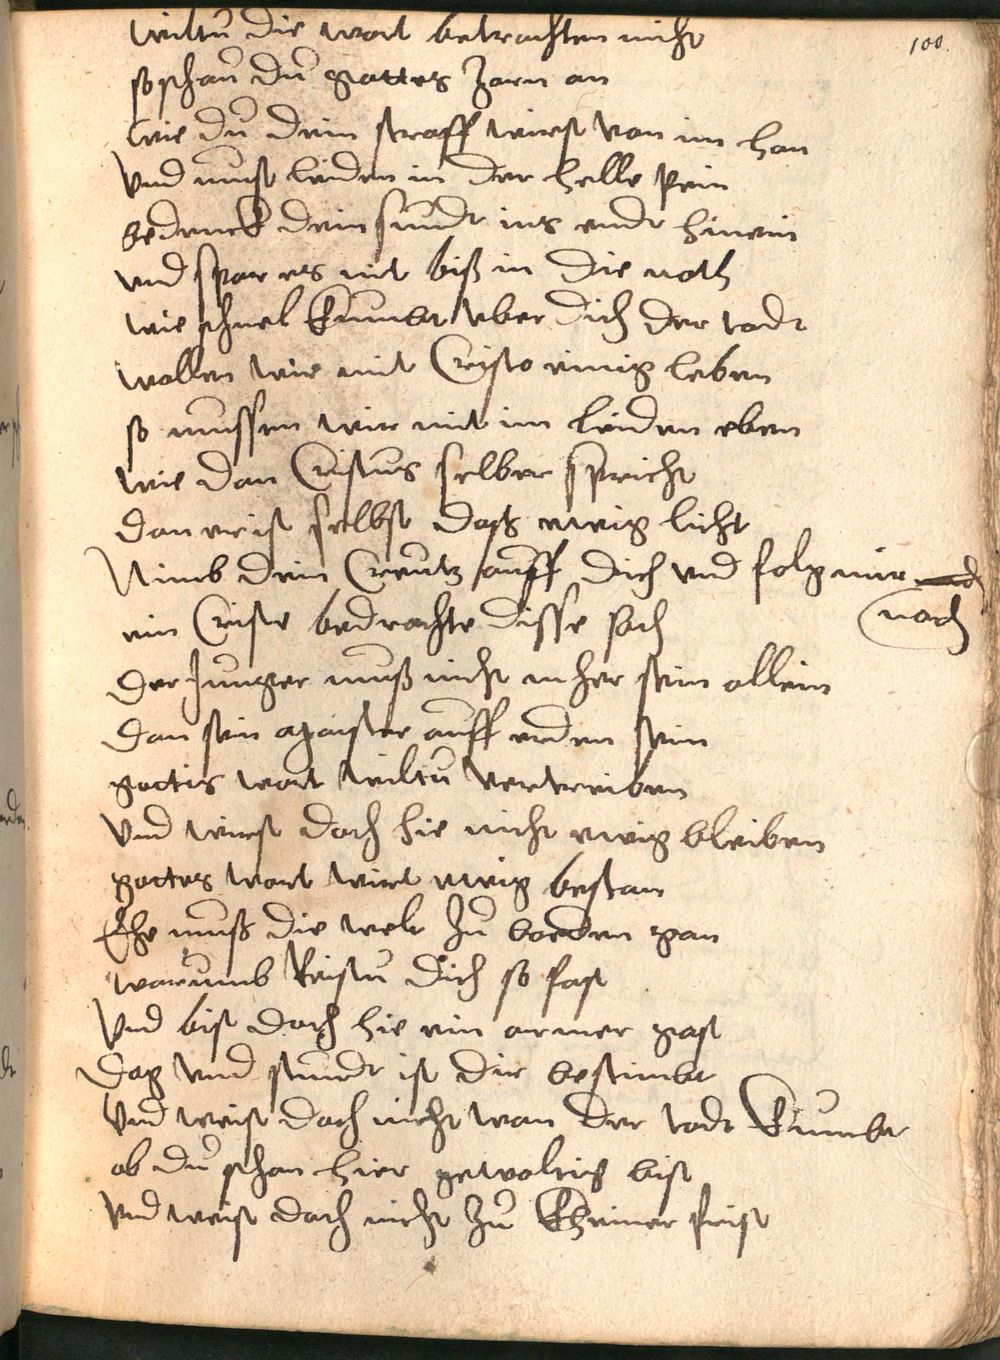 100.
wiltu die wort betrachten nicht
so schau du gottes Zorn an
wie du dein straff wirst von im han
Vnd must leiden in der helle pein
bedenck dein sundt ins endt hinein
vnd spar es nit biß in die noth
wie schnel kumbt vber dich der todt
wollen wir mit Cristo ewig leben
so mussen wir mit im leiden eben
wie dan Cristus selber spricht
dan er ist selbst daß ewig licht
Nimb dein Creutz auff dich vnd folg mir
nach
ein Criste bedrachte disse sach
der Junger muß nicht mher sein allein
dan sein Maister auff erden sein
gottis wort wiltu vertreiben
Vnd wirst doch hie nicht ewig bleiben
gottes wort wirt ewig bestan
Ehe muß die welt Zu boeden gan
warumb reistu dich so fast
Vnd bist doch hie ein armer gast
Dag vnd stundt ist dir bestimbt
Vnd weist doch nicht wan der todt kumbt
ob du schon hier gewaltig bist
vnd weist doch nicht Zu kheiner frist